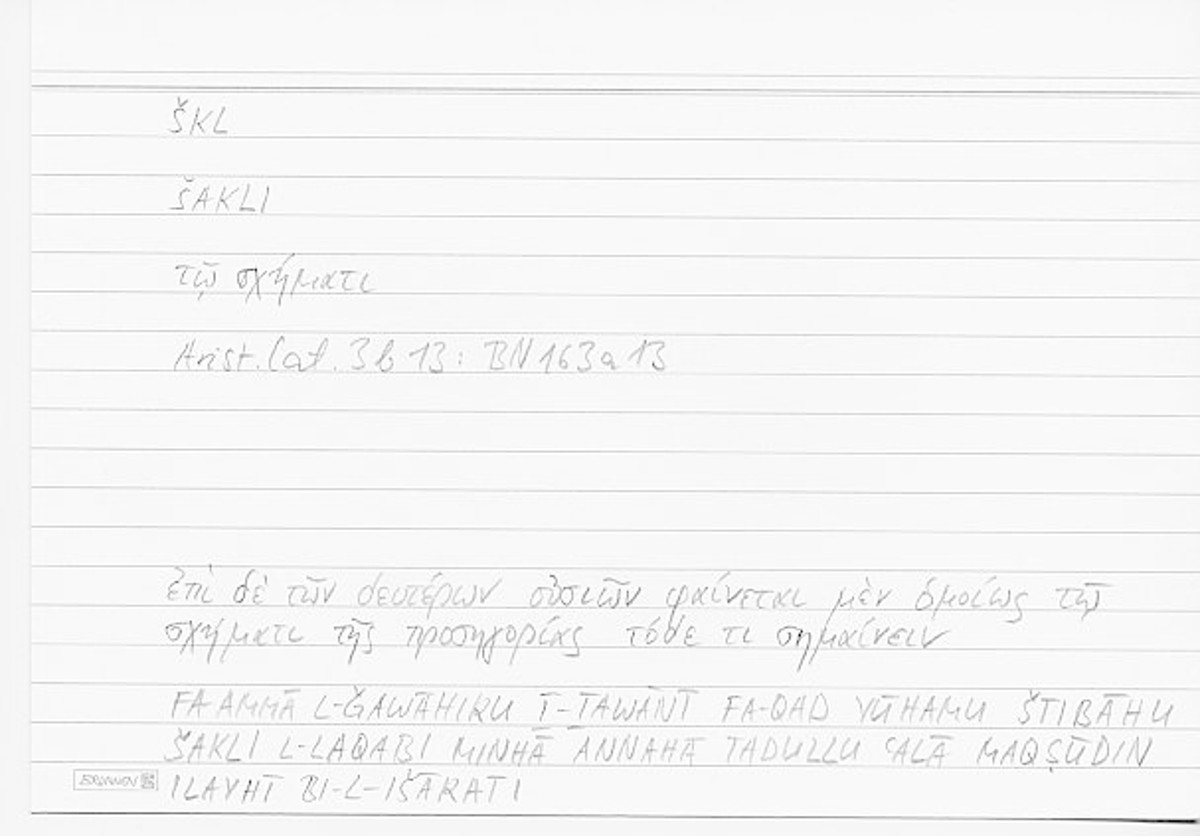 ŠKL
ŠAKLI
τῷ σχήματι
Arist. Cat. 3 b 13 : BN 163 a 13
ἐπὶ δὲ τῶν δευτέρων οὐσιῶν φαίνεται μὲν ὁμοίως τῷ
σχήματι τῆς προσηγορίας τόδε τι σημαίνειν
FA-AMMĀ L-ǦAWĀHIRU Ṯ-ṮAWĀNĪ FA-QAD YŪHAMU ŠTIBĀHU
ŠAKLI L-LAQABI MINHĀ ANNAHĀ TADULLU ʿALĀ MAQṢŪDIN
ILAYHĪ BI-L-IŠĀRATI